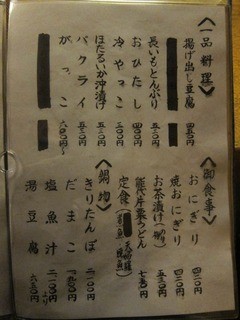 〈一品料理〉
揚げ出し豆腐 四五〇円
長いもとんぶり 五五〇円
おひたし 四五〇円
冷やっこ 三〇〇円
ほたるいか沖漬け 五二〇円
バクライ 五五〇円
がっこ 六〇〇円〜
〈御食事〉
おにぎり 四二〇円
焼おにぎり 四二〇円
お茶漬け 五三〇円
能代片栗うどん 七五〇円
定食
〈鍋物〉
きりたんぽ 二一〇〇円
だまこ 一九〇〇円
塩魚汁 二一〇〇円より
湯豆腐 六五〇円